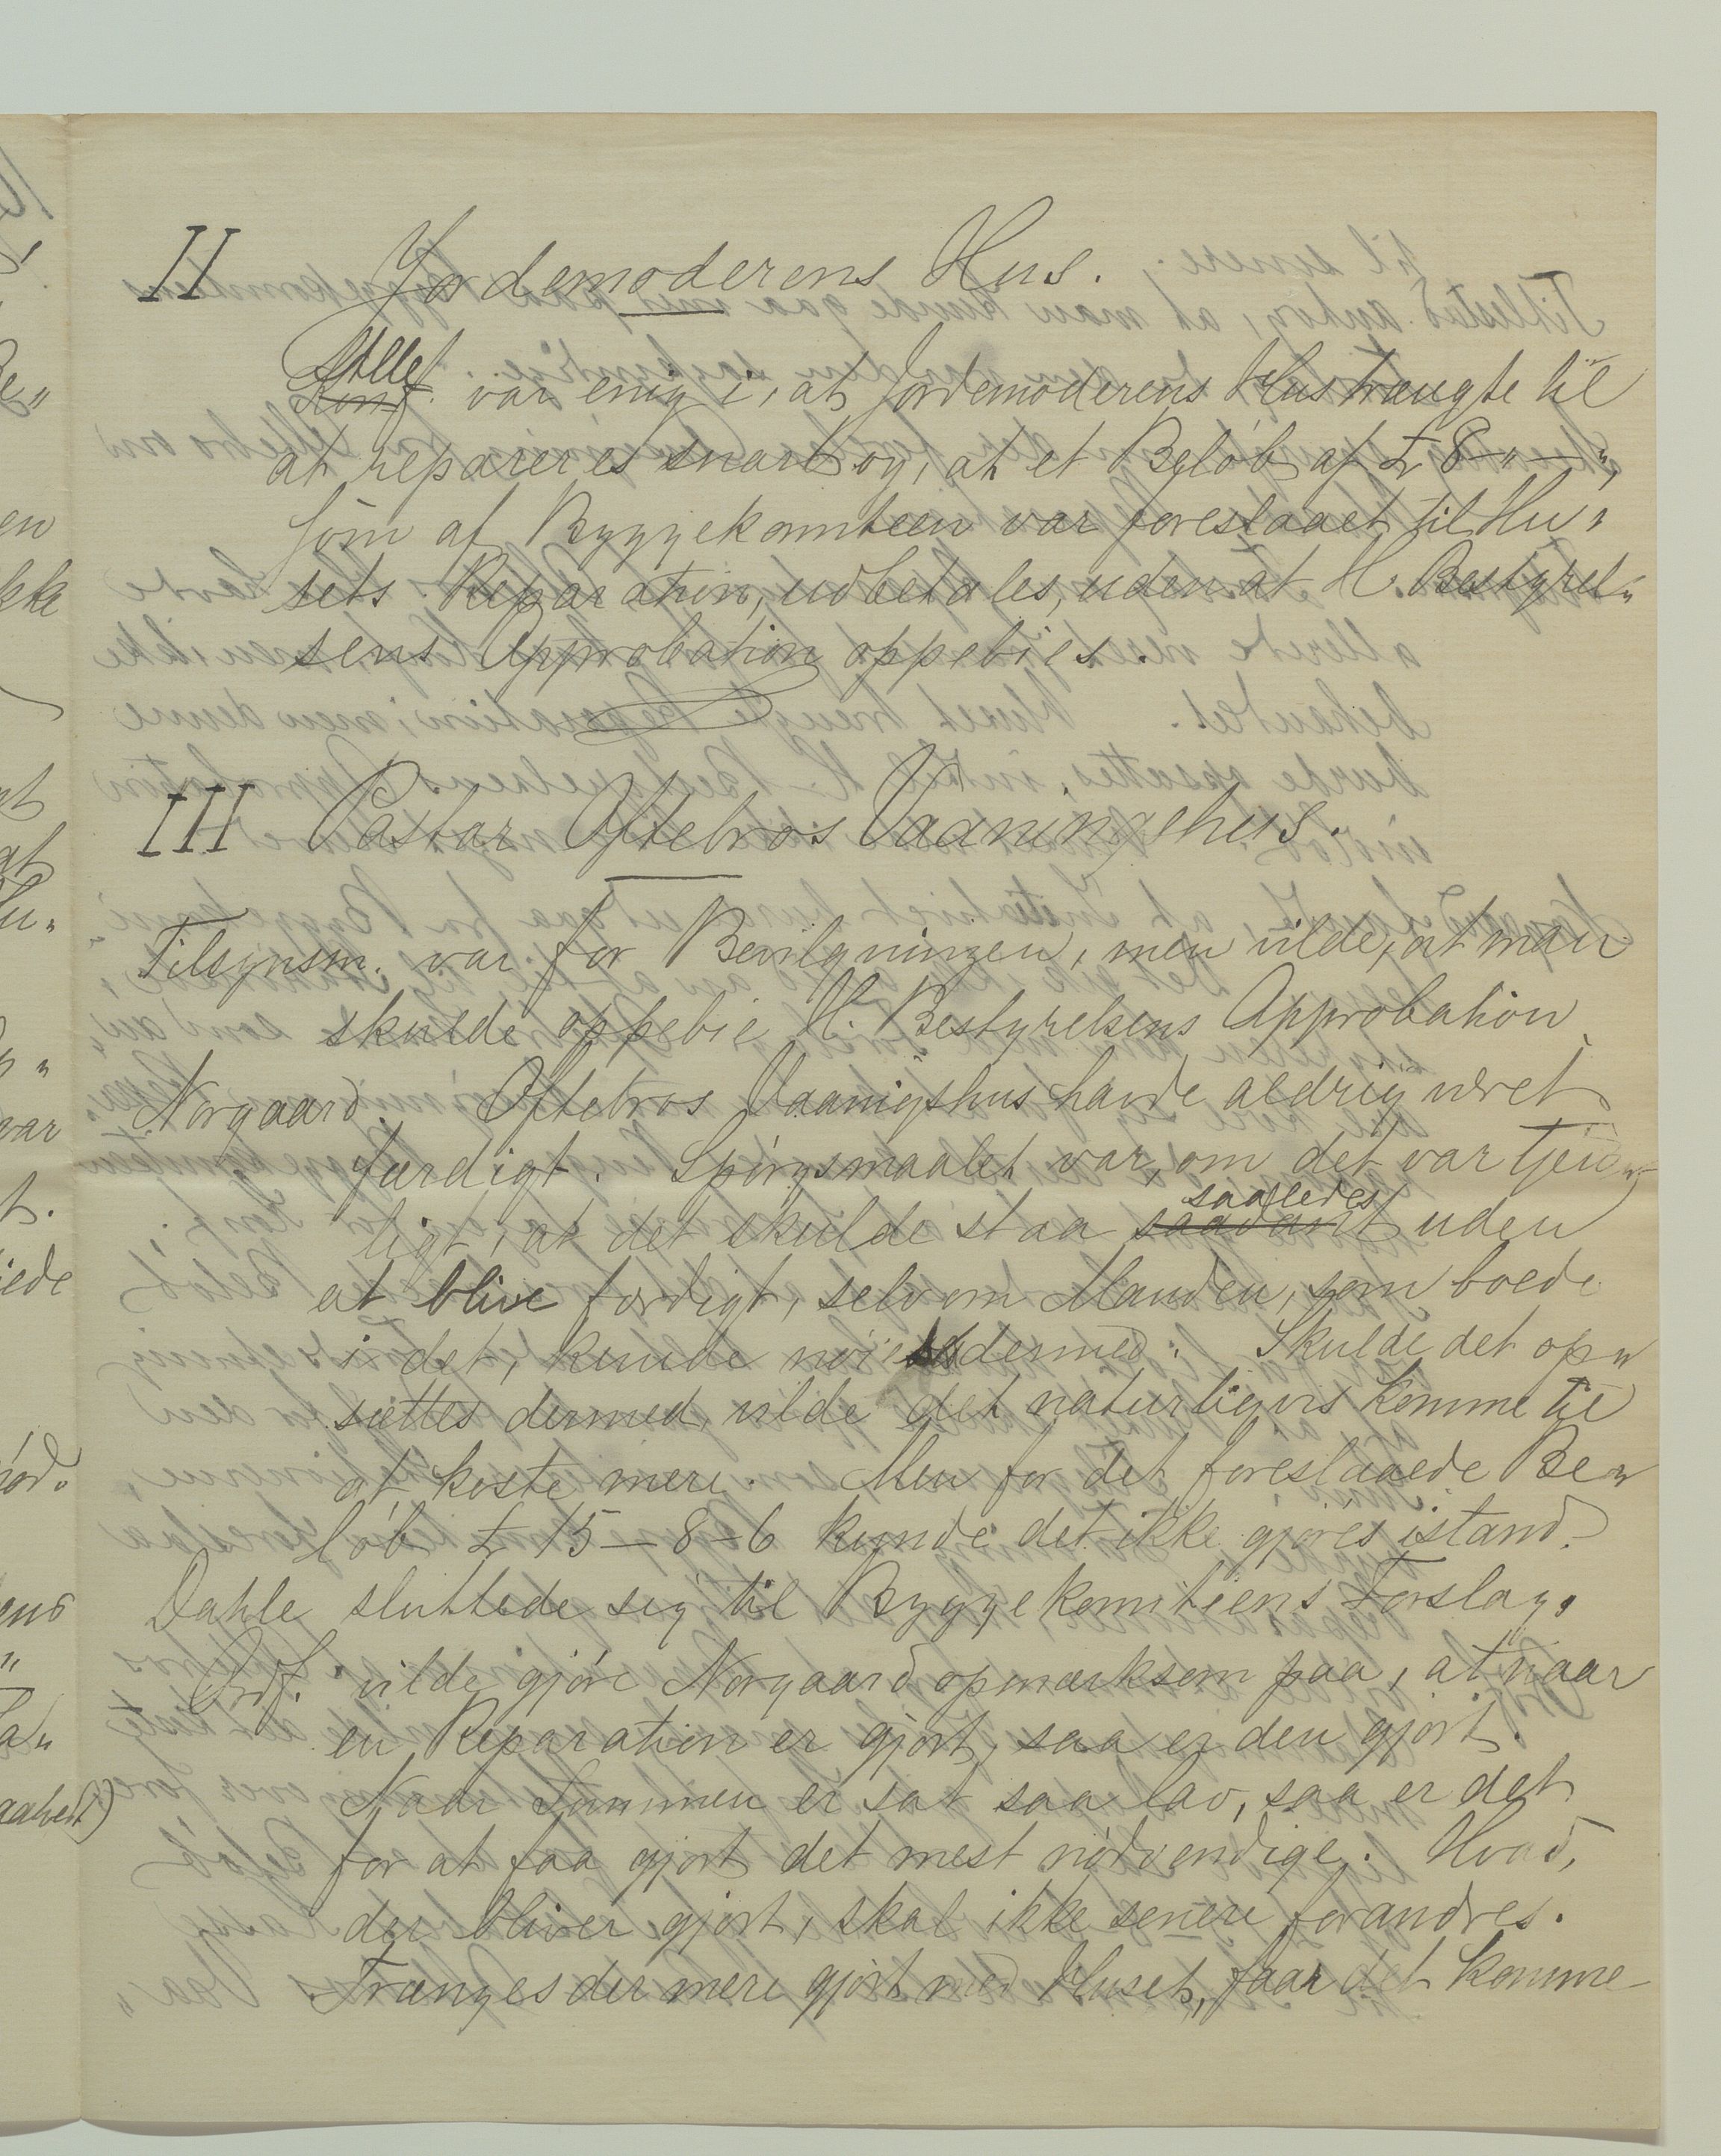 II Jordemoderens Hus.
Alle
Konf. var enig i, at Jordemoderens Hus trængte til
at repareres snart og, at et Beløb af £ 8 - " - ",
som af Byggekomiteen var foreslaaet til Hu„
sets Reparation, udbetales, uden at H. Bestyrel„
sens Approbation oppebies.
III Pastor Oftebros Vaaningshus.
Tilsynsm. var for Bevilgningen, men vilde, at man
skulde oppebie H. Bestyrelsens Approbation
Norgaard. Oftebros Vaanigshus havde aldrig været
færdigt. Spørgsmaalet var, om det var tjen„
saaledes
ligt, at det skulde staa saadant uden
at blive færdigt, selv om Manden, som boede
i det, kunde nøies dermed. Skulde det op„
sættes dermed, vilde det naturligvis komme til
at koste mere. Men for det foreslaaede Be„
løb £ 15 - 8 - 6 kunde det ikke gjøres istand.
Dahle sluttede sig til Byggekomiteens Forslag.
Ordf. vilde gjøre Norgaard opmærksom paa, at naar
en Reparation er gjort, saa er den gjort.
Naar Summen er sat saa lav, saa er det
for at faa gjort det mest nødvendige. Hvad,
der bliver gjort, skal ikke senere forandres.
Trænges der mere gjort med Huset, faar det komme